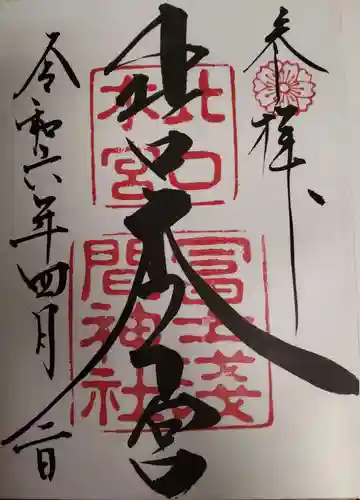 奉拝
北口本宮
北口本宮
冨士浅間神社
令和六年四月二日